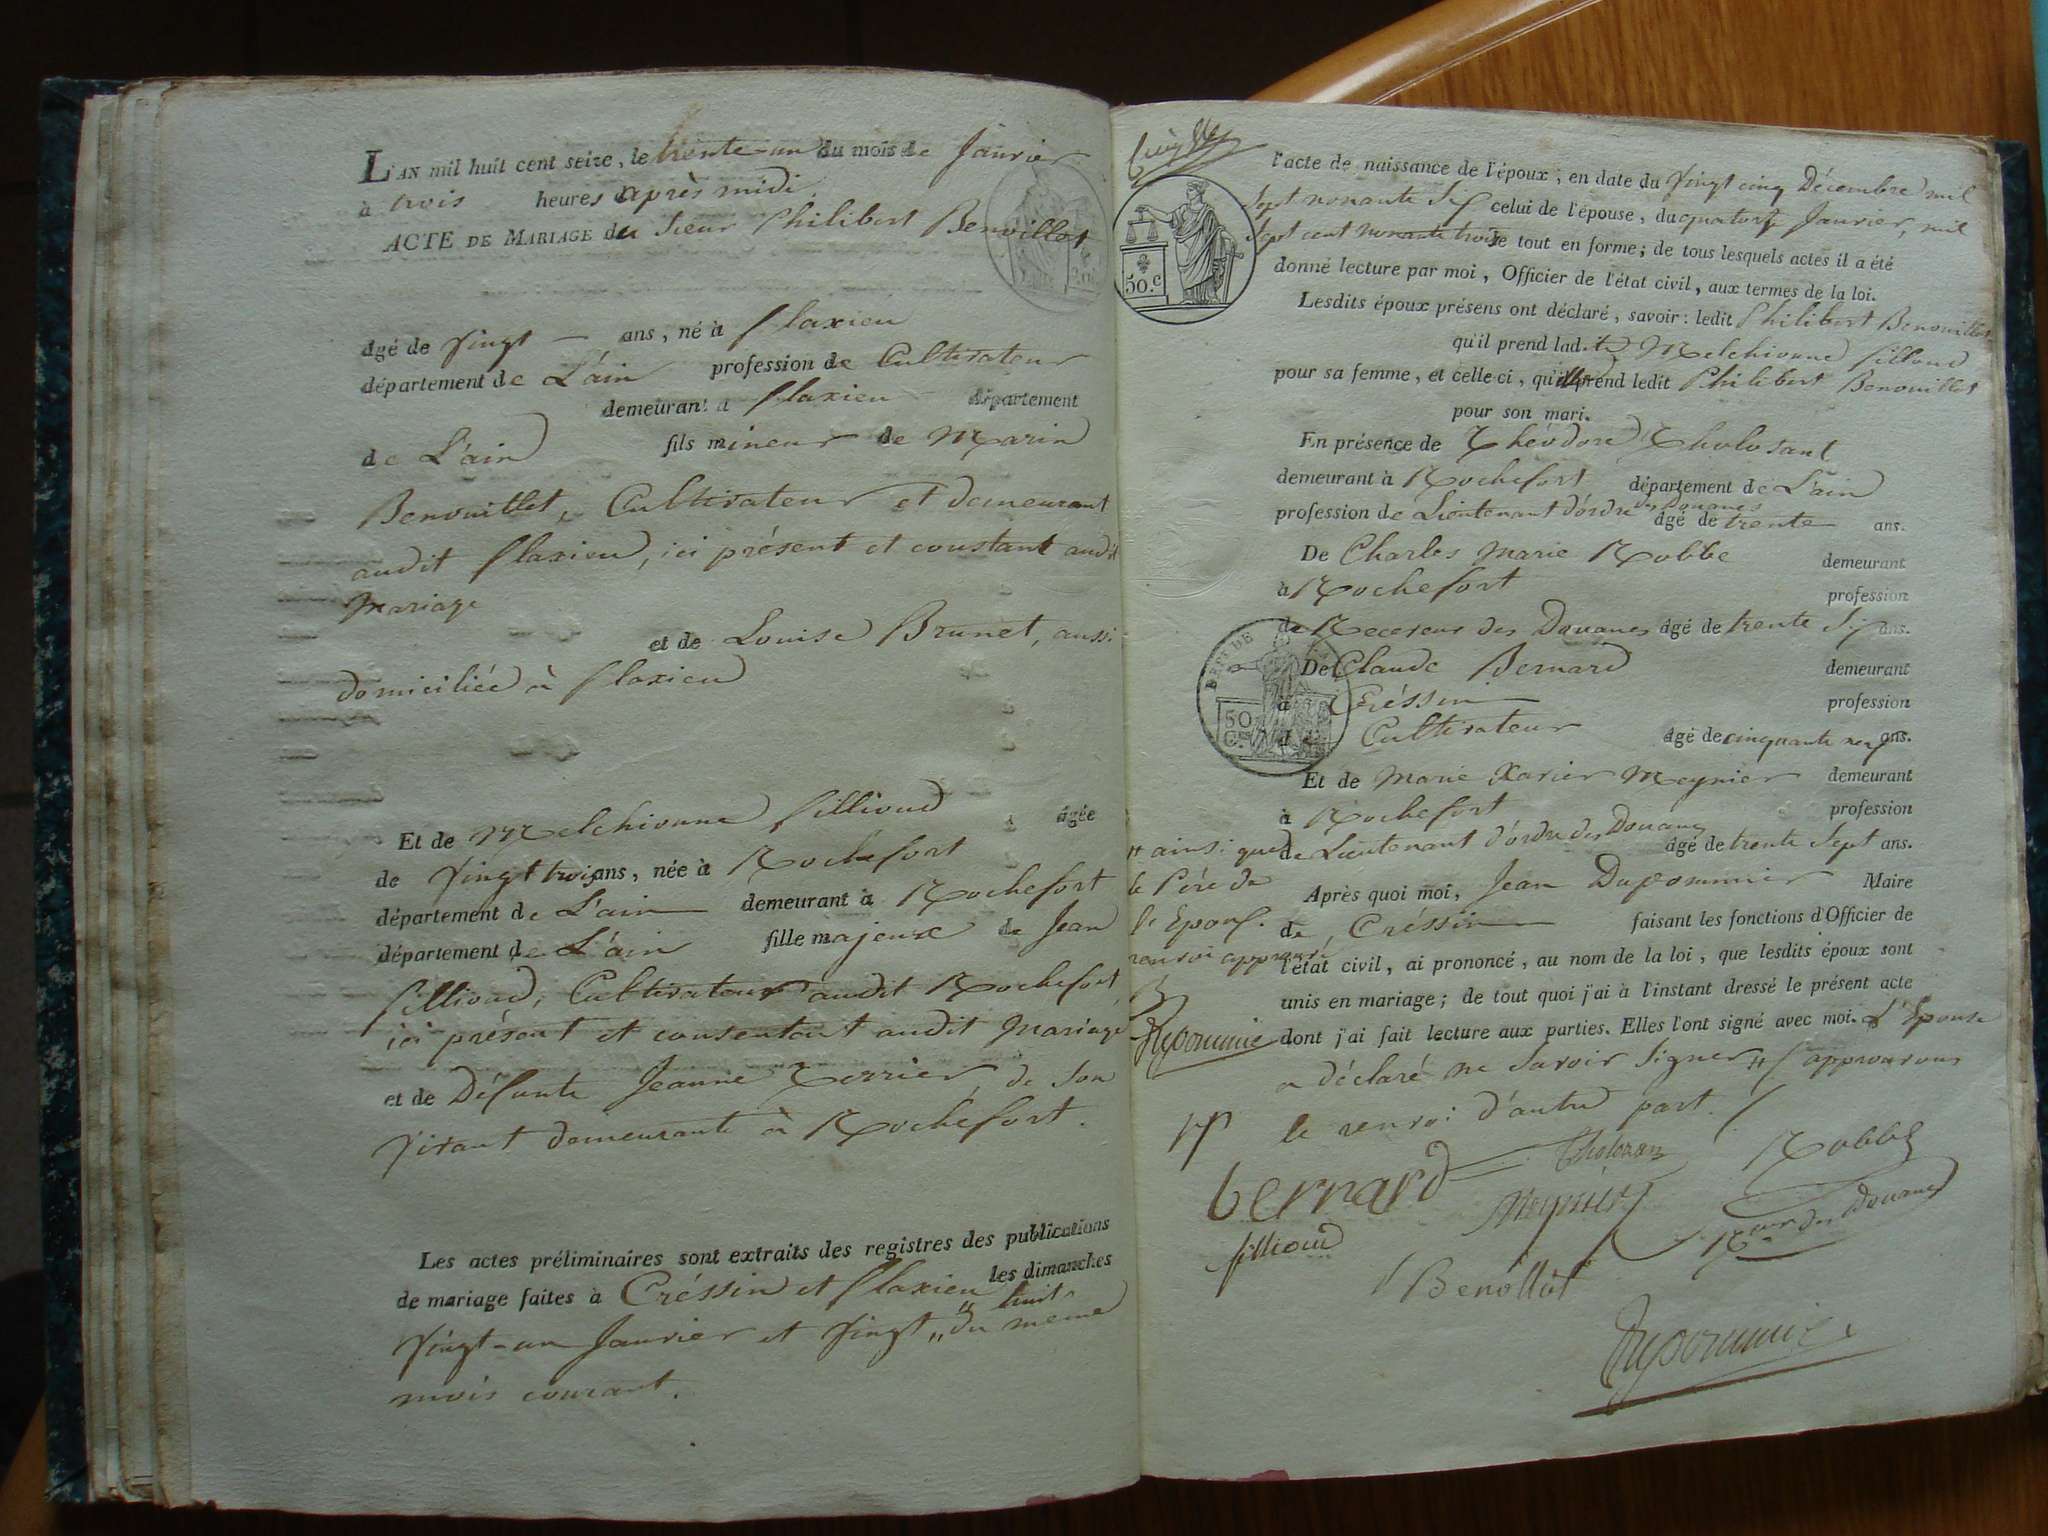 L'AN mil huit cent seize, le trente-un du mois de Janvier
à trois heures après midi.
ACTE DE MARIAGE du Sieur Philibert Benouillet
âgé de vingt — ans, né à flaxieu
département de L'ain profession de Cultivateur
demeurant à flaxieu département
de L'ain fils mineur de Marin
Benouillet, Cultivateur et demeurant
audit flaxieu, ici présent et constant audit
Mariage
et de Louise Brunet, aussi
domiciliée à flaxieu
Et de Melchionne fillioud âgée
de vingt trois ans, née à Rochefort
département de L'ain demeurant à Rochefort
département de L'ain fille majeure de Jean
fillioud, Cultivateur audit Rochefort,
ici présent et consentant audit Mariage
et de Défunte Jeanne Terrier, de son
vivant demeurante à Rochefort.
Les actes préliminaires sont extraits des registres des publications
de mariage faites à Créssin et flaxieu les dimanches
vingt-un Janvier et vingt " huit " du meme
mois courant.
l'acte de naissance de l'époux, en date du vingt cinq Décembre mil
sept nonante six celui de l'épouse, du quatorze Janvier, mil
sept cent nonante trois le tout en forme; de tous lesquels actes il a été
donné lecture par moi, Officier de l'état civil, aux termes de la loi.
50.c
Lesdits époux présens ont déclaré, savoir: ledit Philibert Benouillet
qu'il prend lad.te Melchionne fillioud
pour sa femme, et celle ci, qu'elle prend ledit Philibert Benouillet
pour son mari.
En présence de Théodore Tholosant
demeurant à Rochefort département de L'ain
profession de Lieutenant d'ordre des Douanes âgé de trente ans.
De Charles Marie Robbe demeurant
à Rochefort profession
de Receveur des Douanes âgé de trente six ans.
De Claude Bernard demeurant
à Créssin profession
d Cultivateur âgé de cinquante neuf ans.
50 C.
Et de Marie Xavier Meynier demeurant
à Rochefort profession
de Lieutenant d'ordre des Douanes âgé de trente sept ans.
Après quoi moi, Jean Dupommier Maire
de Créssin faisant les fonctions d'Officier de
l'état civil, ai prononcé, au nom de la loi, que lesdits époux sont
unis en mariage; de tout quoi j'ai à l'instant dressé le présent acte
dont j'ai fait lecture aux parties. Elles l'ont signé avec moi. L'Epouse
a déclaré ne savoir signer # / approuvons
le renvoi d'autre part. /
# ainsi que
le Père de
l'Epoux.
renvoi approuvé
Dupommier
bernard Tholozan Robbe
Meynier Rveur des Douanes
fillioud
Benollièt
Dupommier